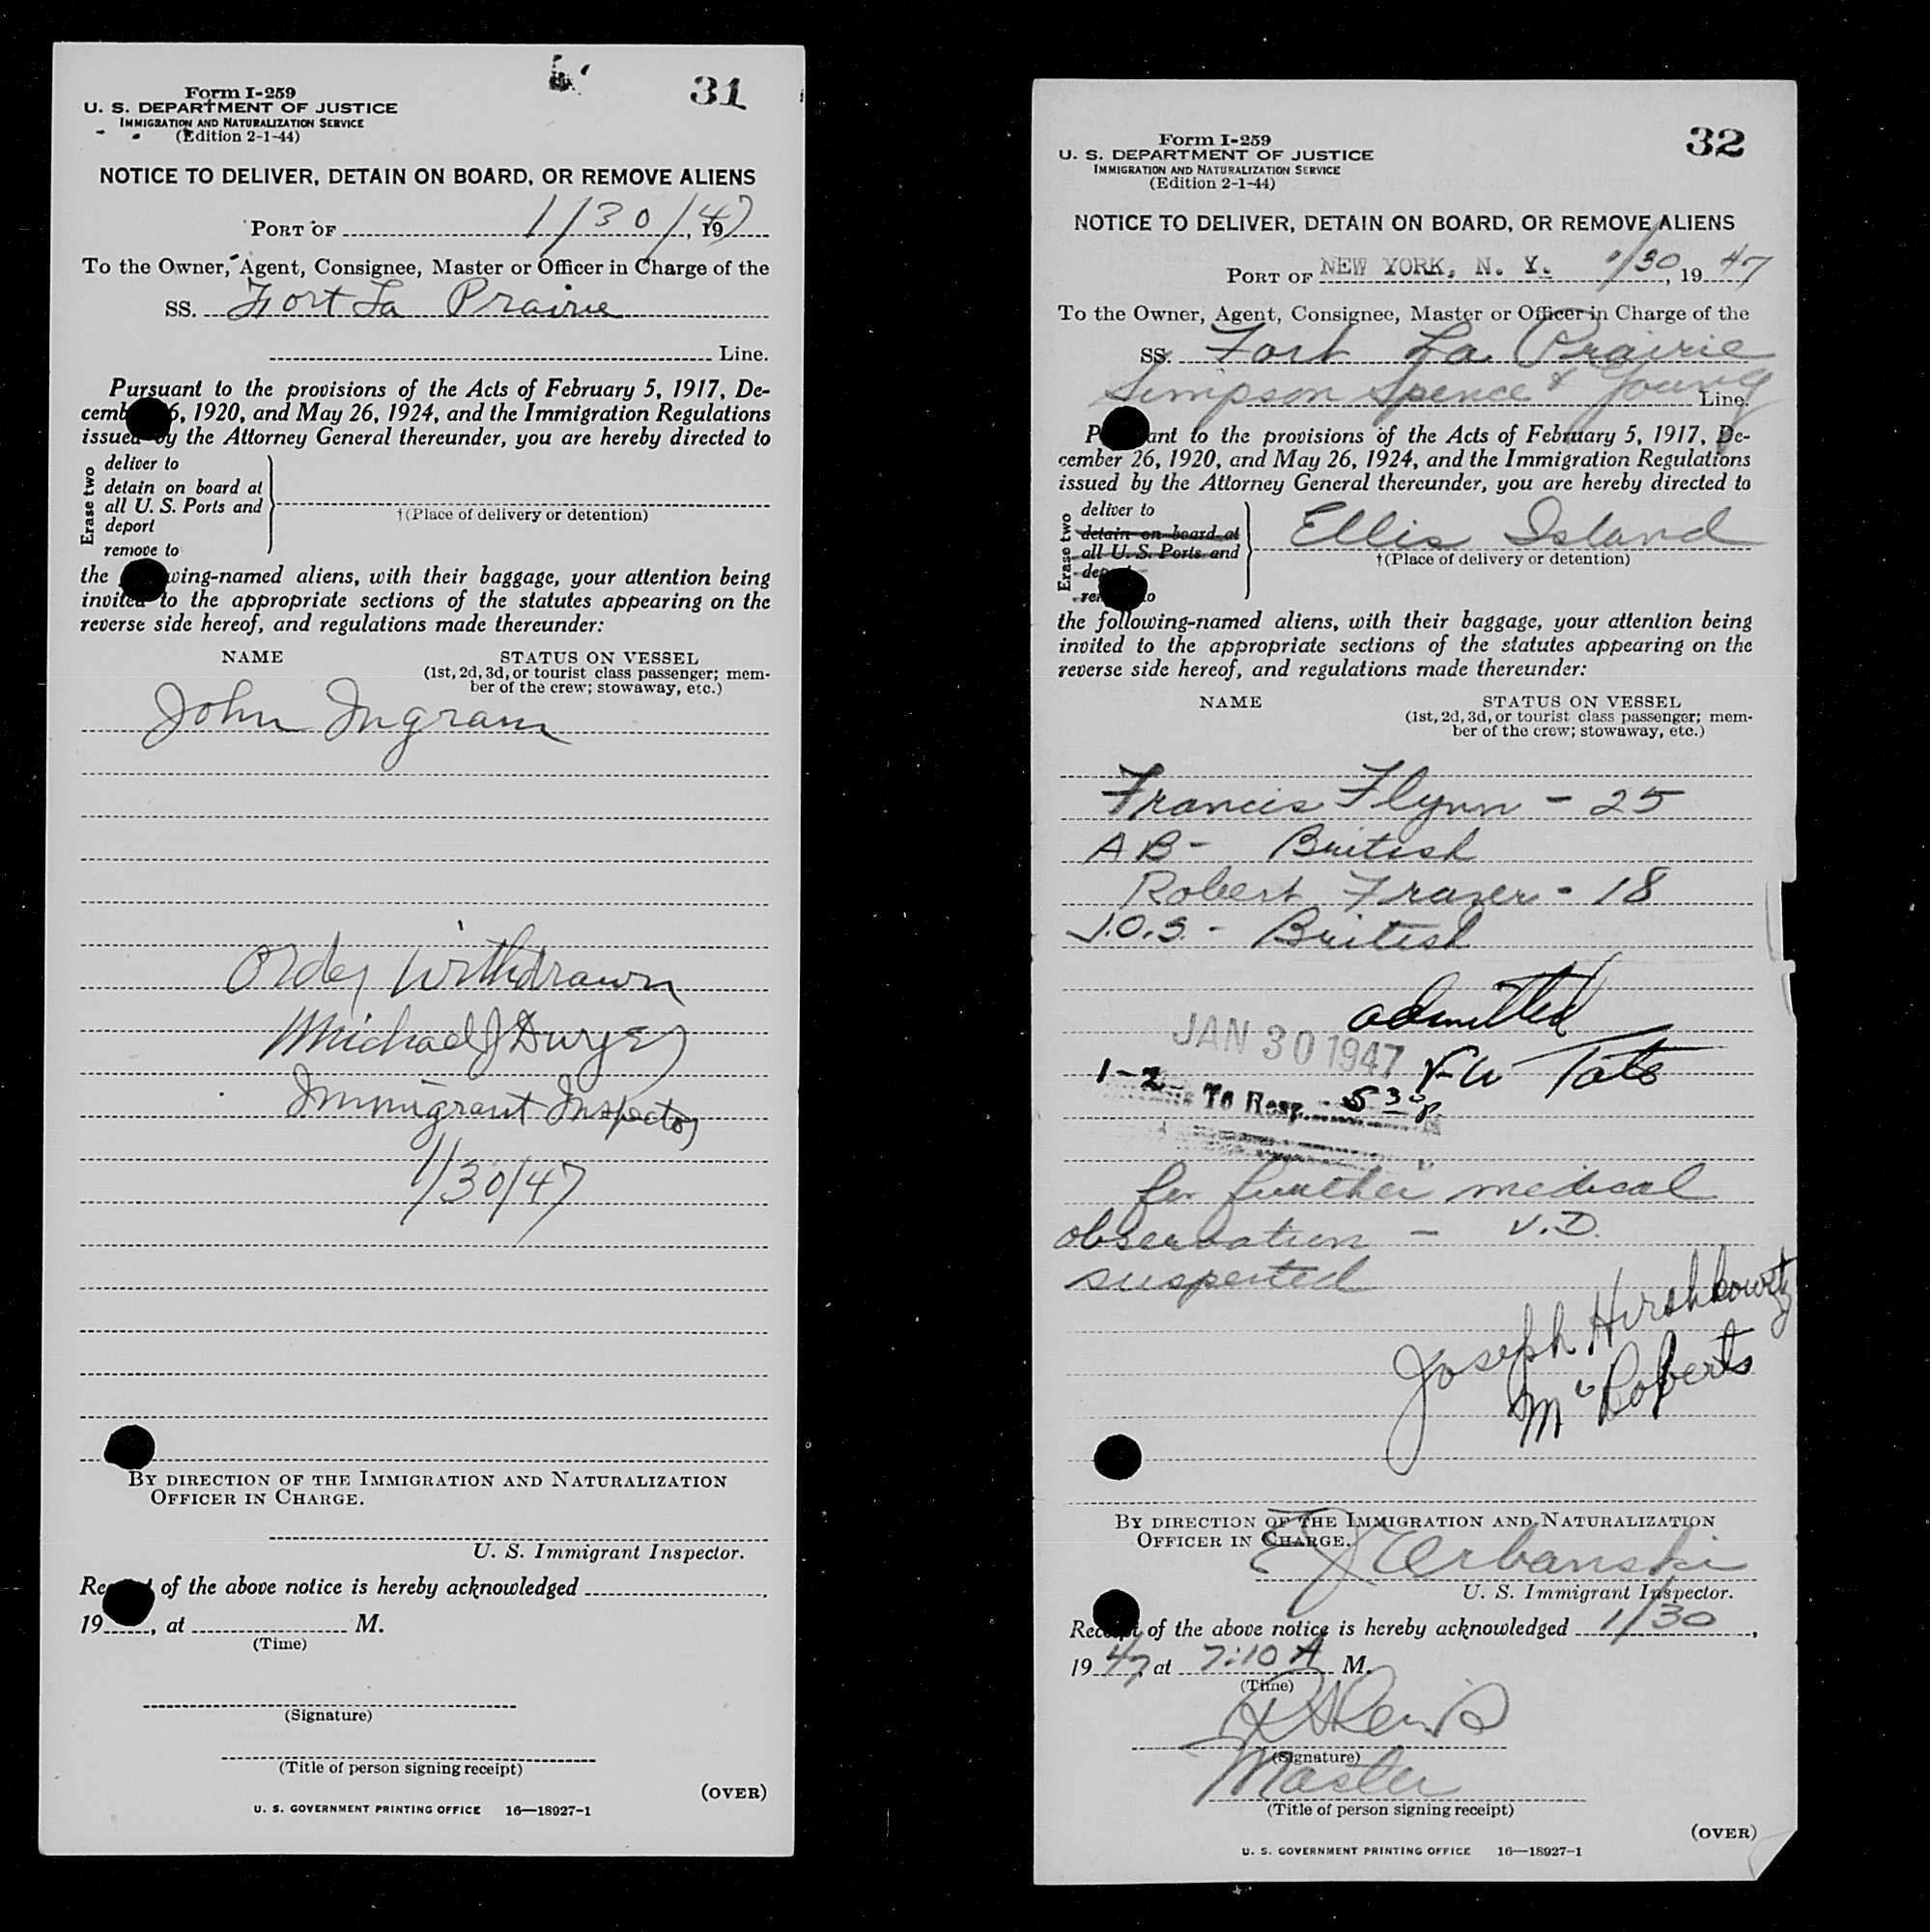 31
Form I-259
U. S. DEPARTMENT OF JUSTICE
IMMIGRATION AND NATURALIZATION SERVICE
(Edition 2-1-44)
NOTICE TO DELIVER, DETAIN ON BOARD, OR REMOVE ALIENS
PORT OF 1/30/47, 19
To the Owner, Agent, Consignee, Master or Officer in Charge of the
SS. Fort La Prairie
Line.
Pursuant to the provisions of the Acts of February 5, 1917, De-
cemb 6, 1920, and May 26, 1924, and the Immigration Regulations
issued by the Attorney General thereunder, you are hereby directed to
Erase two
deliver to
detain on board at
all U. S. Ports and
deport
remove to
†(Place of delivery or detention)
the wing-named aliens, with their baggage, your attention being
invited to the appropriate sections of the statutes appearing on the
reverse side hereof, and regulations made thereunder:
NAME STATUS ON VESSEL
(1st, 2d, 3d, or tourist class passenger; mem-
ber of the crew; stowaway, etc.)
John Ingram
Order Withdrawn
Michael J Dwyer
Immigrant Inspector
1/30/47
BY DIRECTION OF THE IMMIGRATION AND NATURALIZATION
OFFICER IN CHARGE.
U. S. Immigrant Inspector.
Re of the above notice is hereby acknowledged ,
19 , at M.
(Time)
(Signature)
(Title of person signing receipt)
(OVER)
U. S. GOVERNMENT PRINTING OFFICE 16—18927-1
32
Form I-259
U. S. DEPARTMENT OF JUSTICE
IMMIGRATION AND NATURALIZATION SERVICE
(Edition 2-1-44)
NOTICE TO DELIVER, DETAIN ON BOARD, OR REMOVE ALIENS
PORT OF NEW YORK, N. Y. 1/30, 19 47
To the Owner, Agent, Consignee, Master or Officer in Charge of the
SS. Fort La Prairie
Simpson Spence & Young Line.
P ant to the provisions of the Acts of February 5, 1917, De-
cember 26, 1920, and May 26, 1924, and the Immigration Regulations
issued by the Attorney General thereunder, you are hereby directed to
Erase two
deliver to
detain on board at
all U. S. Ports and
de
re o
Ellis Island
†(Place of delivery or detention)
the following-named aliens, with their baggage, your attention being
invited to the appropriate sections of the statutes appearing on the
reverse side hereof, and regulations made thereunder:
NAME STATUS ON VESSEL
(1st, 2d, 3d, or tourist class passenger; mem-
ber of the crew; stowaway, etc.)
Francis Flynn - 25
AB - British
Robert Fraser - 18
J.O.S. - British
admitted
JAN 30 1947
1-2 Tate
To Hosp. 5 30 P
for further medical
observation - V.D.
suspected
Joseph Hirshkowitz
McRoberts
BY DIRECTION OF THE IMMIGRATION AND NATURALIZATION
OFFICER IN CHARGE.
E J Urbanski
U. S. Immigrant Inspector.
Receipt of the above notice is hereby acknowledged 1/30,
19 47, at 7:10 A M.
(Time)
(Signature)
Master
(Title of person signing receipt)
(OVER)
U. S. GOVERNMENT PRINTING OFFICE 16—18927-1